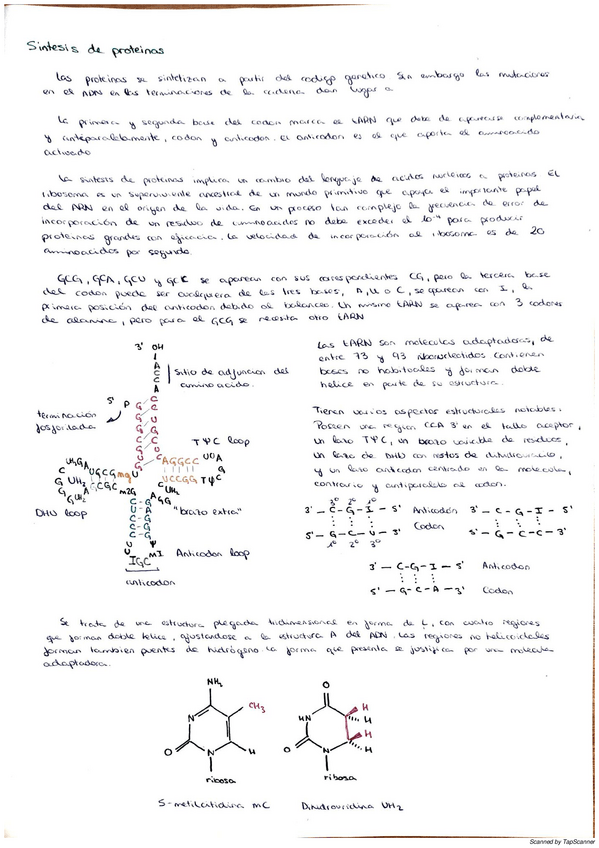 Síntesis de proteinas
Las proteinas se sintetizan a partir del codigo genetico Sin embargo las mutaciones
en el ADN en las terminaciones de la cadena dan lugar a
La primera y segunda base del codon marca el tARN que debe de aparearse complementaria
y antiparalelamente, codon y anticodon. El anticodon es el que aporta el aminoacido
activado
La sintesis de proteinas implica un cambio del lenguaje de acidos nucleicos a proteinas El
ribosoma es un superviviente ancestral de un mundo primitivo que apoya el importante papel
del ARN en el origen de la vida. En un proceso tan complejo la frecuencia de error de
incorporación de un residuo de aminoacidos no debe exceder el 10⁻⁴ para producir
proteinas grandes con eficacia. La velocidad de incorporación al ribosoma es de 20
aminoacidos por segundo.
GCG, GCA, GCU y GCC se aparean con sus correspondientes CG, pero la tercera base
del codon puede ser cualquiera de las tres bases, A, U o C, se aparean con I, la
primera posición del anticodon debido al balanceo. Un mismo tARN se aparea con 3 codones
de alanina, pero para el GCG se necesita otro tARN
3' OH
A
C
C
A
Sitio de adjuncion del
aminoacido.
5' P
terminación
fosforilada
TΨC loop
DHU loop
"brazo extra"
Anticodon loop
IGC
anticodon
Los tARN son moleculas adaptadoras, de
entre 73 y 93 ribonucleotidos contienen
bases no habituales y forman doble
helice en parte de su estructura.
Tienen varios aspectos estructurales notables:
Poseen una region CCA 3' en el tallo aceptor,
un lazo TΨC, un brazo variable de residuos,
un lazo de DHU con restos de dihidrouracilo,
y un lazo anticodon centrado en la molecula,
contrario y antiparalelo al codon.
3º 2º 1º
3' - C - G - I - 5' Anticodón
5' - G - C - U - 3' Codon
1º 2º 3º
3' - C - G - I - 5'
5' - G - C - C - 3'
3' - C - G - I - 5' Anticodon
5' - G - C - A - 3' Codon
Se trata de una estructura plegada tridimensional en forma de L, con cuatro regiones
que forman doble helice, ajustandose a la estructura A del ADN. Las regiones no helicoidales
forman tambien puentes de hidrógeno la forma que presenta se justifica por una molecula
adaptadora.
NH₂
CH₃
N
O
N
H
ribosa
5-metilcitidina mC
O
H
H
HN
H
H
O
N
ribosa
Dihidrouridina UH₂
Scanned by TapScanner